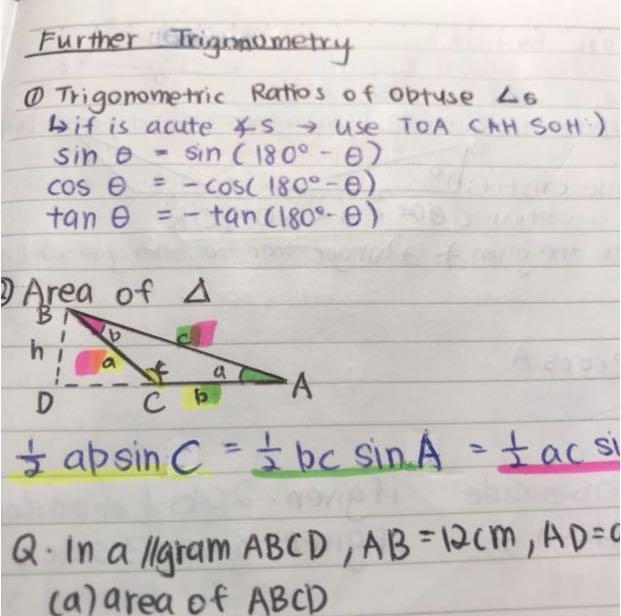 Further Trignometry
① Trigonometric Ratios of obtuse ∠s
↳ if is acute ∠s → use TOA CAH SOH :)
sin θ = sin (180° - θ)
cos θ = -cos( 180° - θ)
tan θ = - tan (180° - θ)
② Area of △
B
b
c
h
a
a
A
D
C
b
½ ab sin C = ½ bc sin A = ½ ac si
Q. In a //gram ABCD, AB = 12cm, AD =
(a) area of ABCD